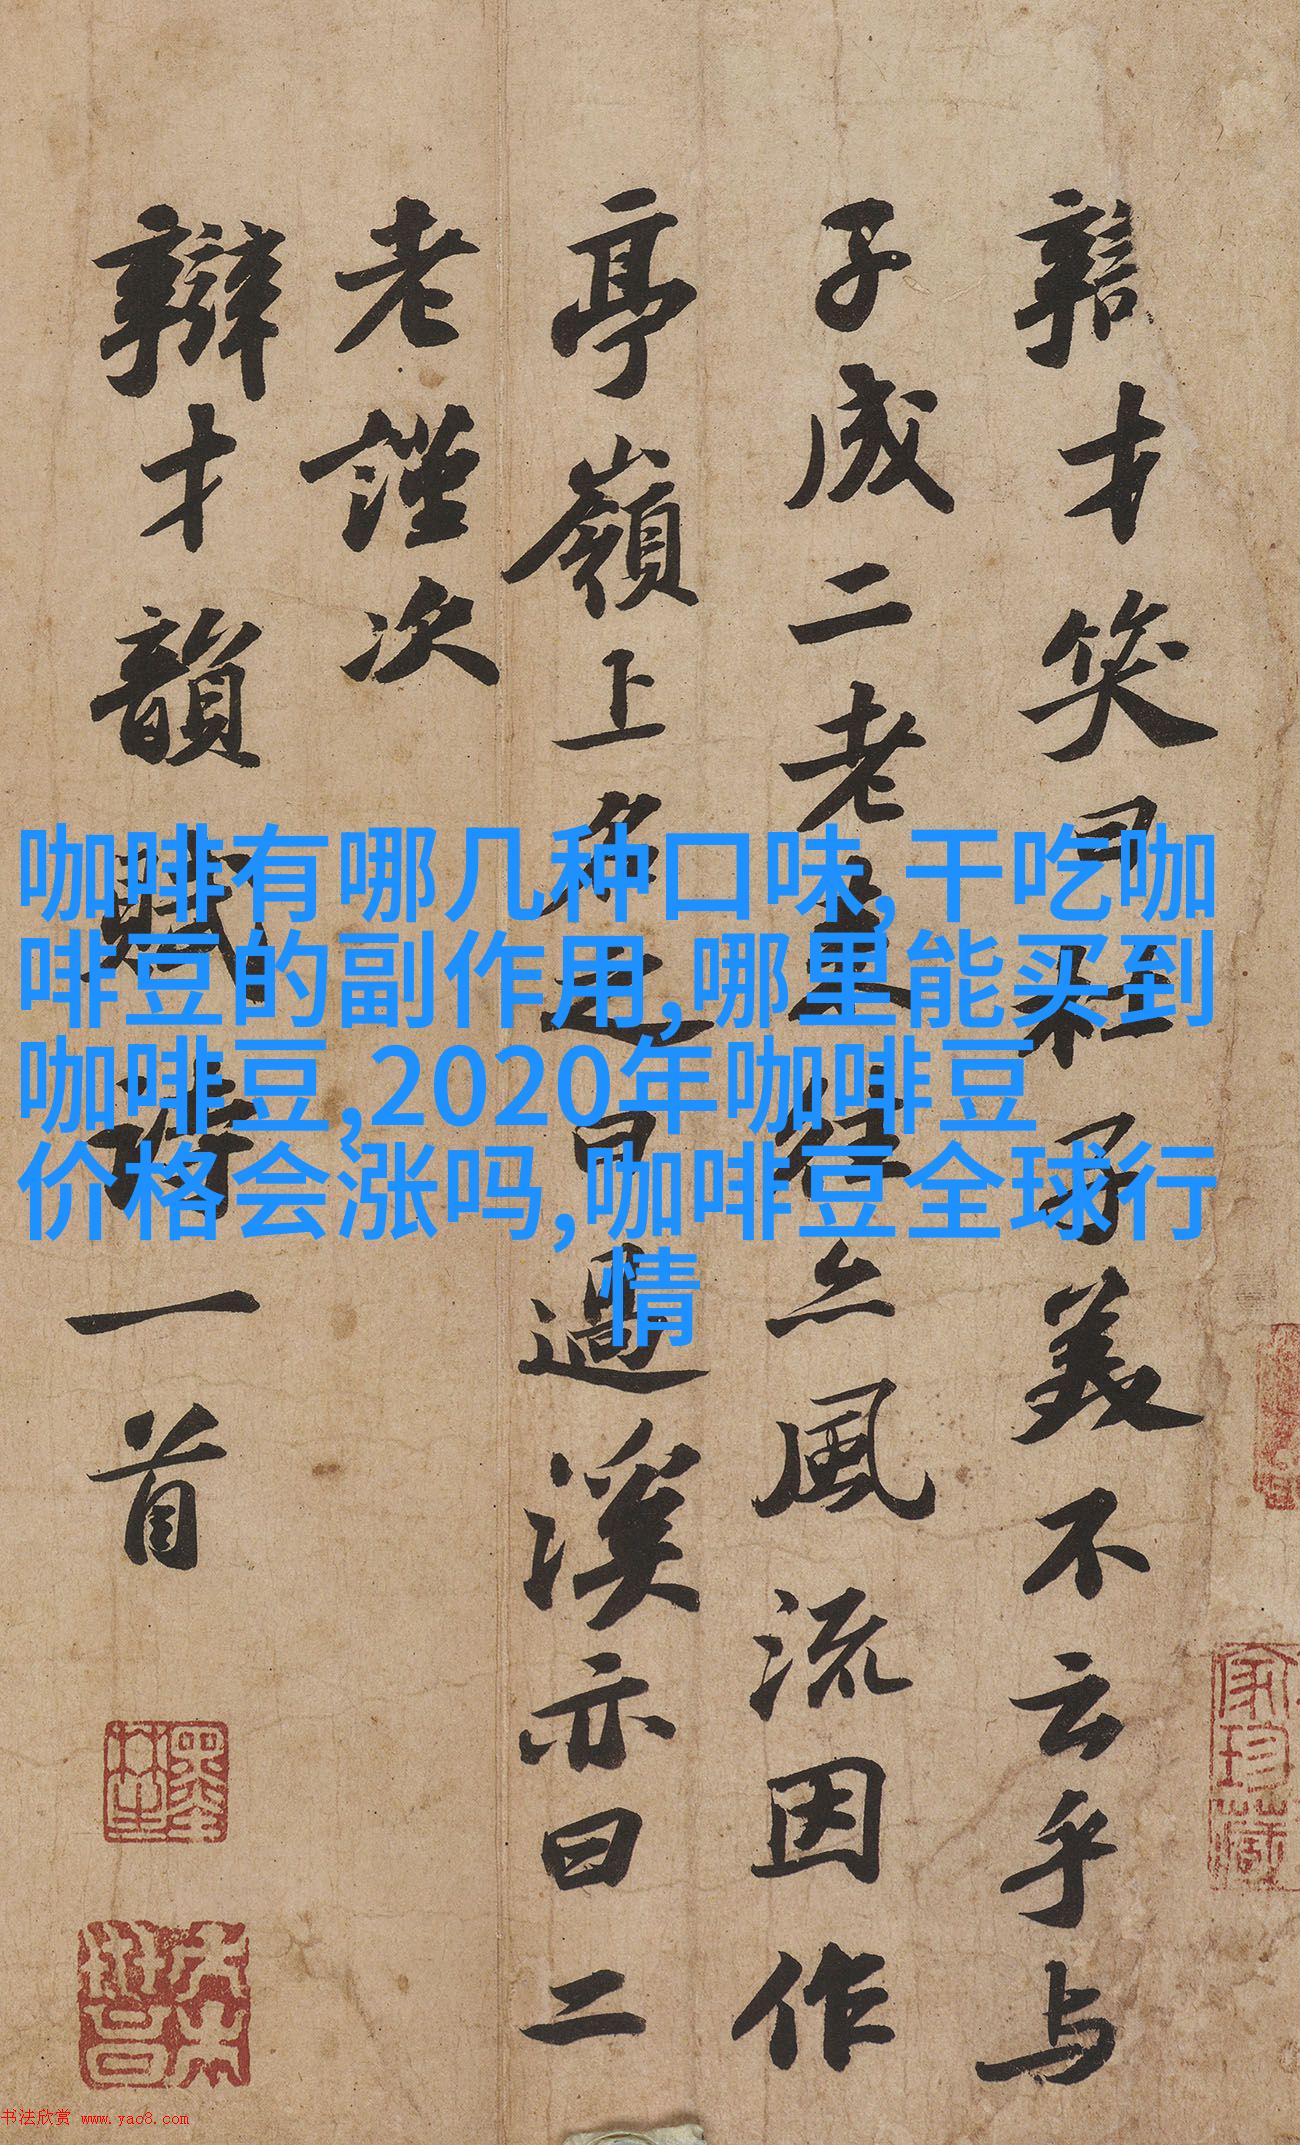 辯才笑曰杜子美不云乎与
子成二老来往亦風流因作
亭嶺上名之曰過溪亦曰二
老謹次
辯才韻賦詩一首
咖啡有哪几种口味,干吃咖
啡豆的副作用,哪里能买到
咖啡豆,2020年咖啡豆
价格会涨吗,咖啡豆全球行
情
家珍藏
书法欣赏 www.yac8.com